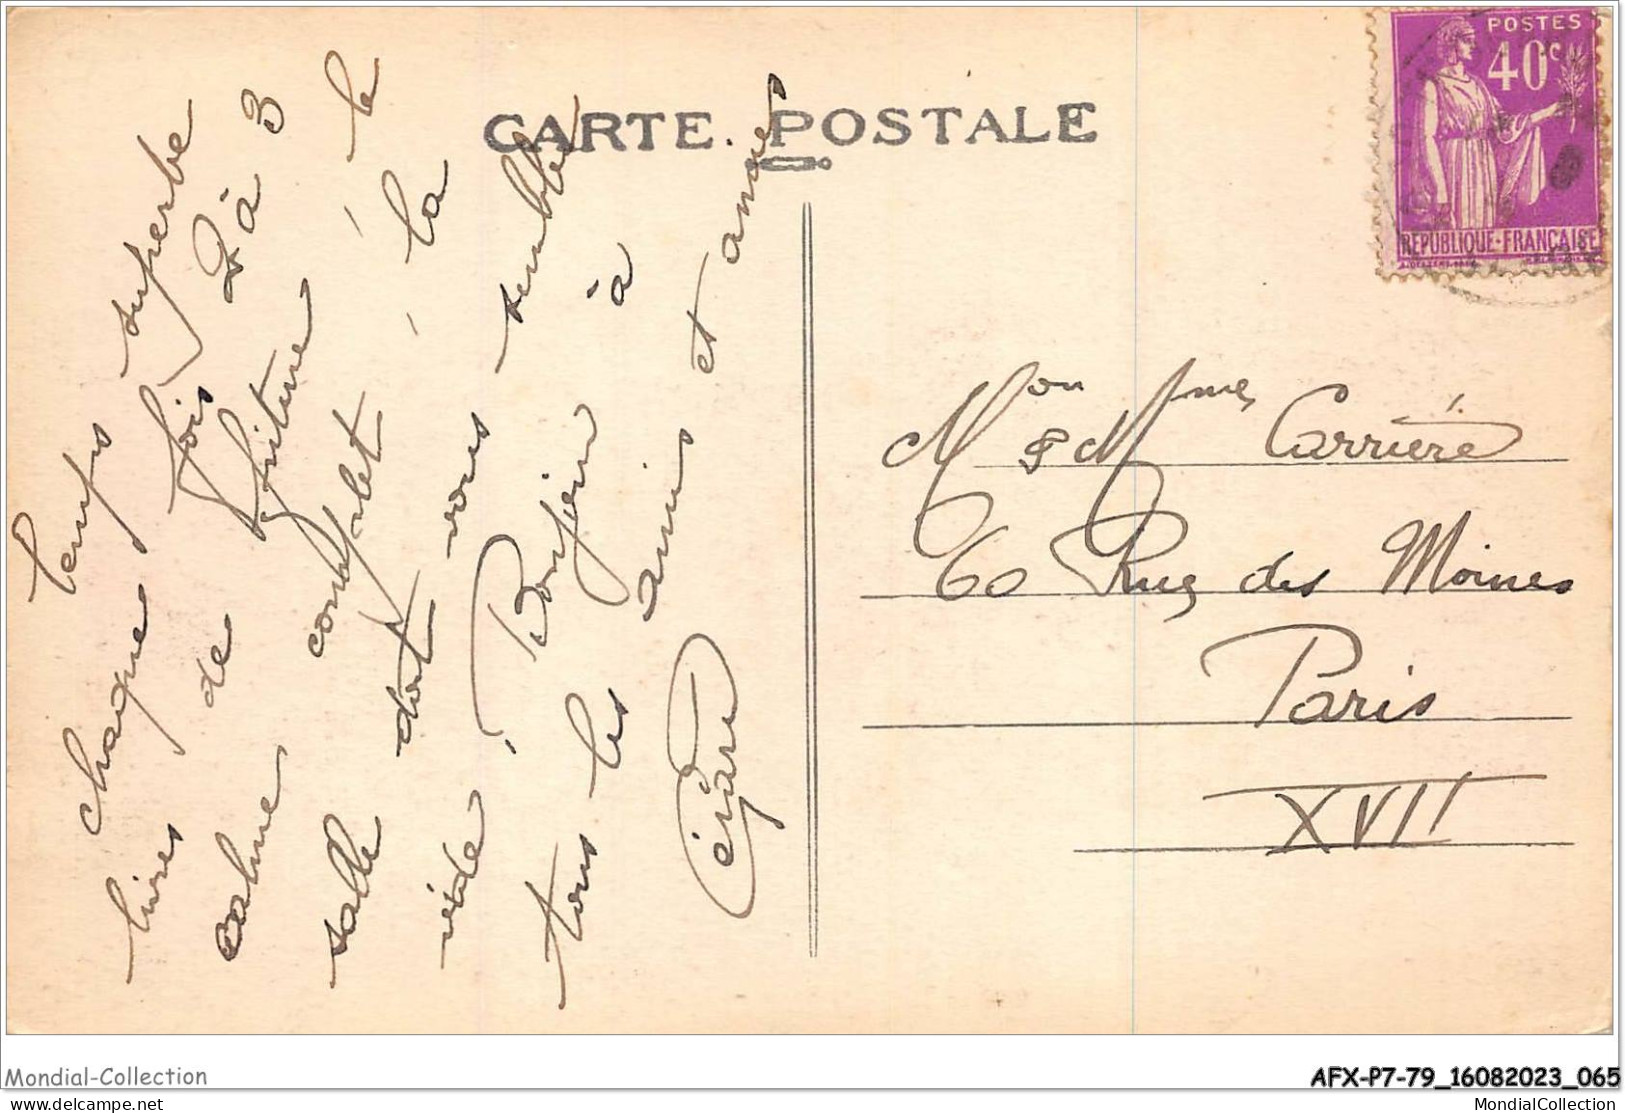 CARTE POSTALE
POSTES
40c
RÉPUBLIQUE-FRANÇAISE
temps superbe
chaque fois 2 à 3
livres de friture - le
calme complet - la
salle doit vous sembler
vide ! Bonjour à
tous les amis et amies
Mon & Mme Carrière
60 Rue des Moines
Paris
XVII
Mondial-Collection
AFX-P7-79_16082023_065
delcampe.net
MondialCollection